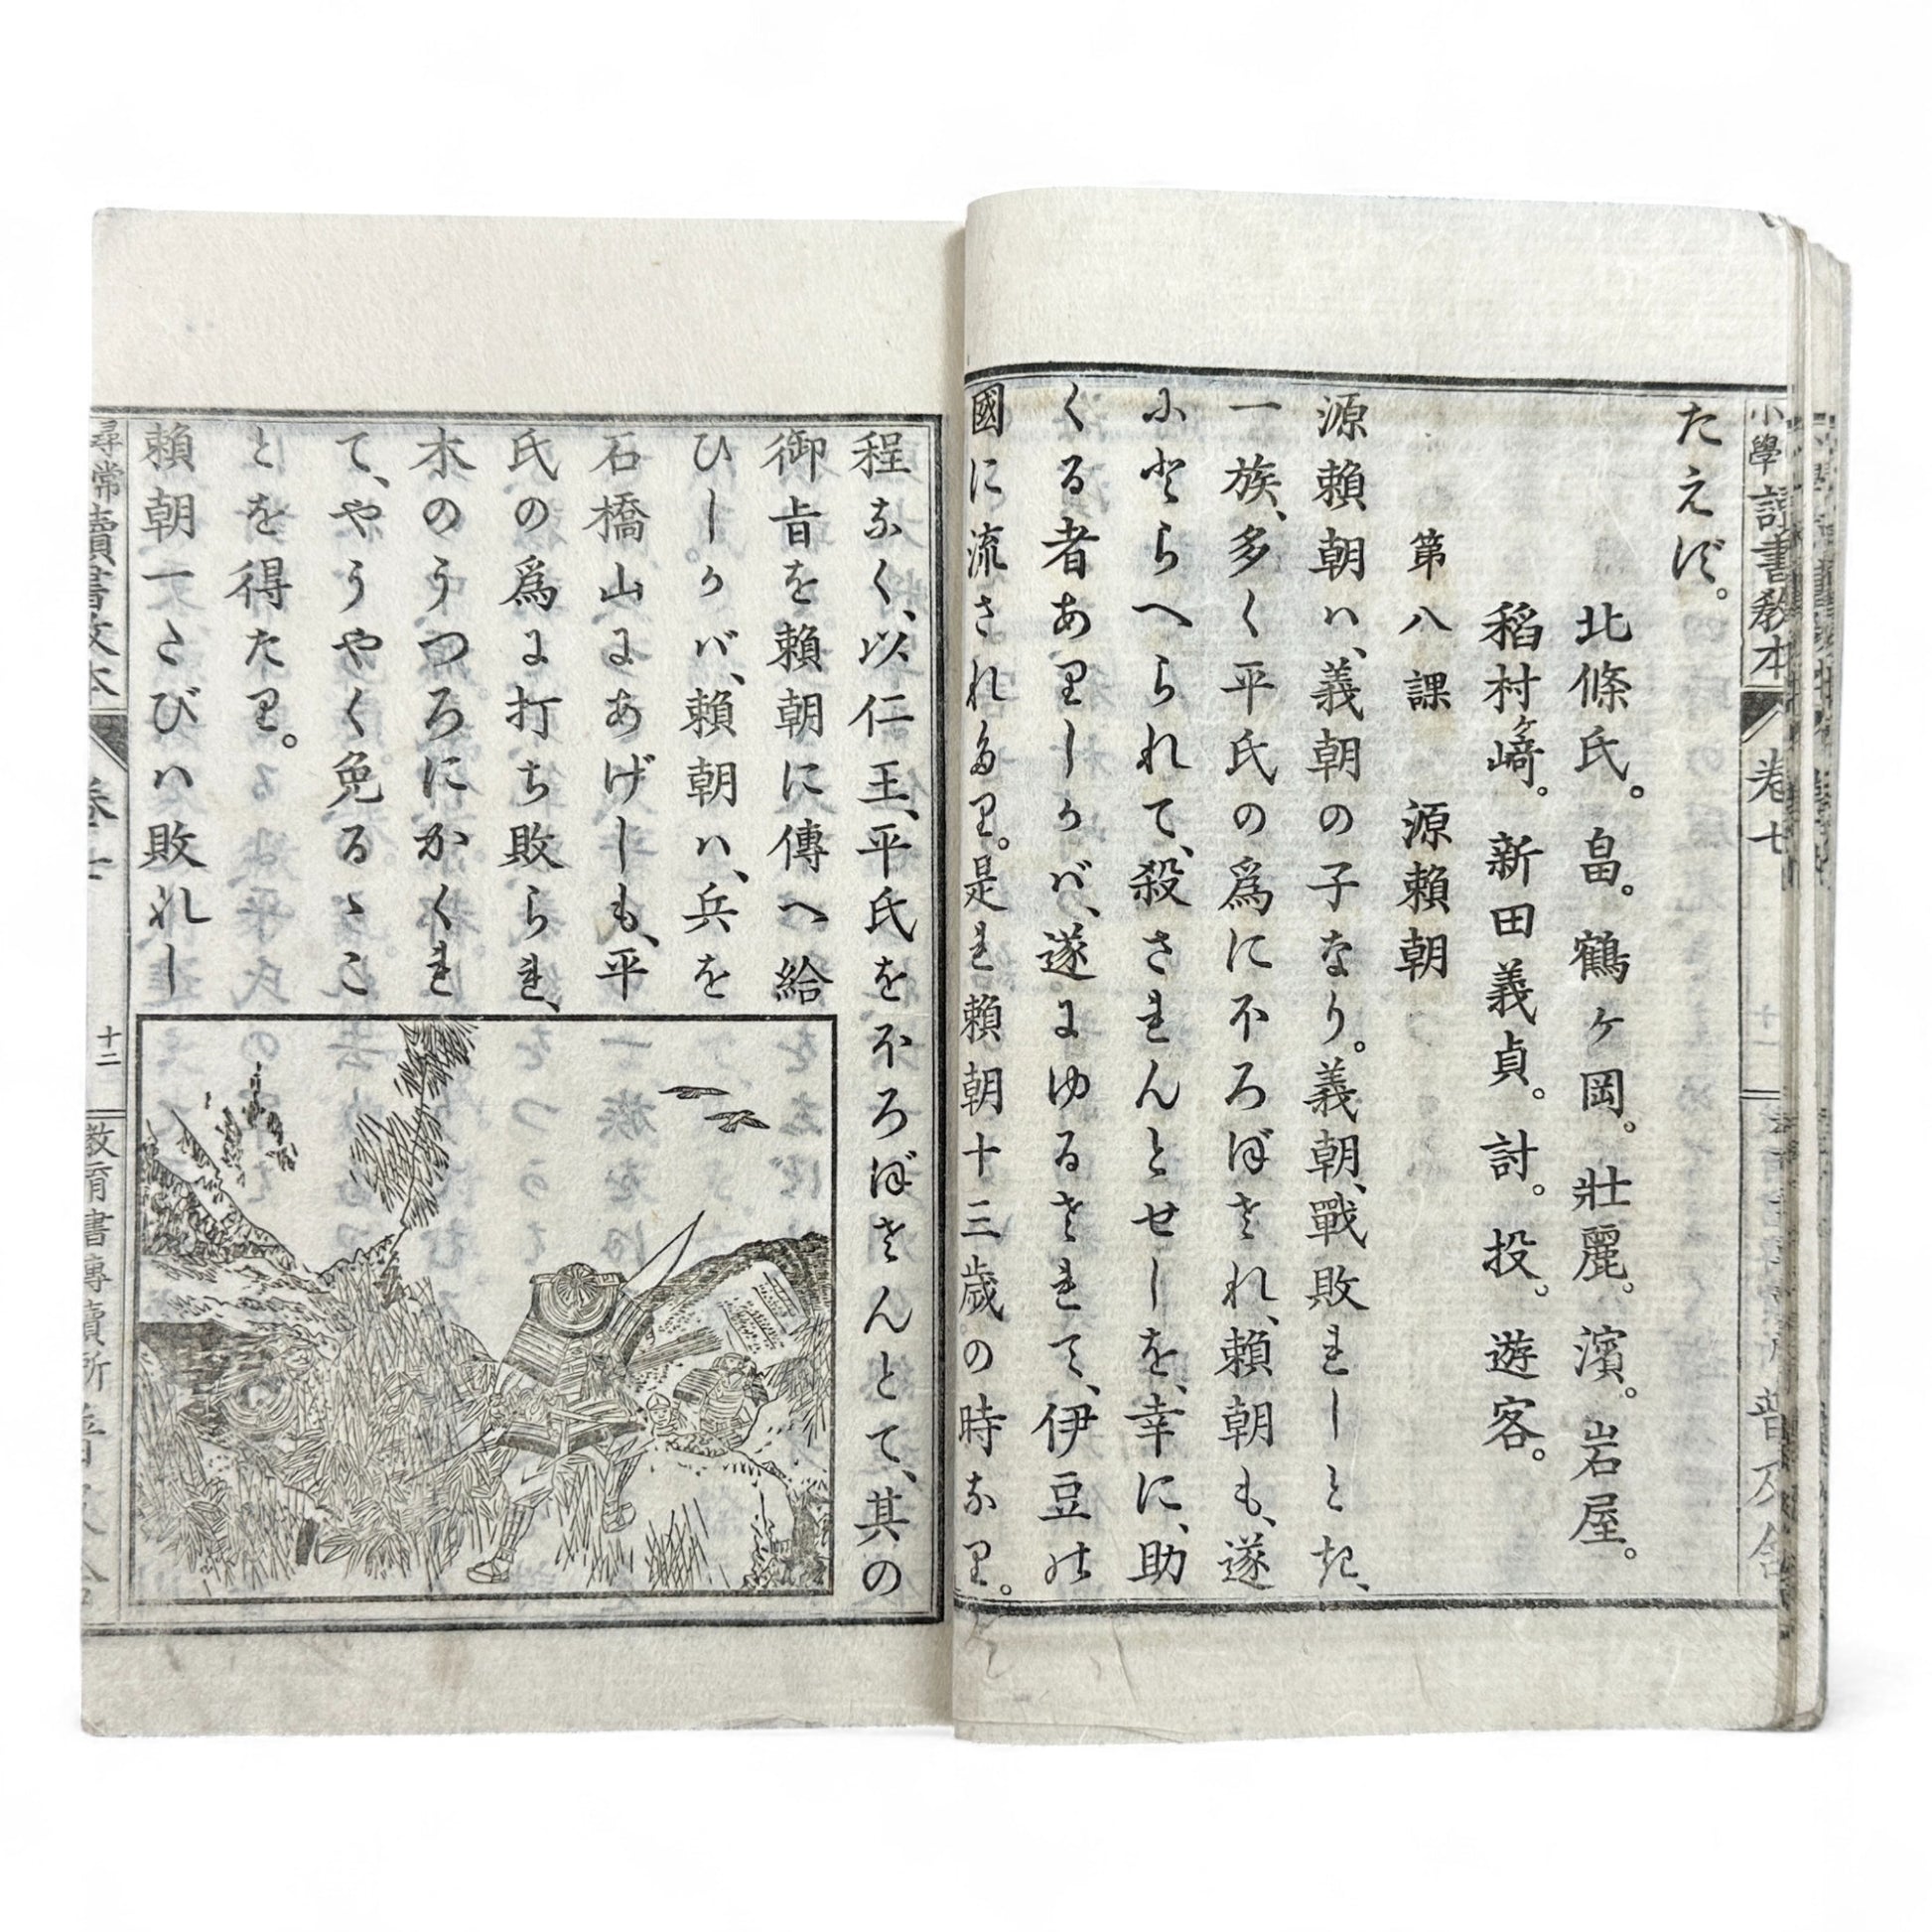 小學讀書教本 卷七 十一 普及舎
たえず。
北條氏。畠。鶴ヶ岡。壯麗。濱。岩屋。
稻村ヶ﨑。新田義貞。計。投。遊客。
第八課 源賴朝
源賴朝ハ、義朝の子なり。義朝、戰敗れしとき、
一族、多く平氏の爲に不ろぼされ、賴朝も、遂
にとらへられて、殺されんとせしを、幸に、助
くる者ありしかバ、遂にゆるされて、伊豆の
國に流されたり。是れ賴朝十三歳の時なり。
程なく、以仁王、平氏を不ろぼさんとて、其の
御旨を賴朝に傳へ給
ひしかバ、賴朝ハ、兵を
石橋山にあげしも、平
氏の爲に打ち敗られ、
木のうつろにかくれ
て、やうやく免るゝこ
とを得たり。
賴朝一たびハ敗れし
尋常讀書教本 卷七 十二 教育書專賣所 普及舎